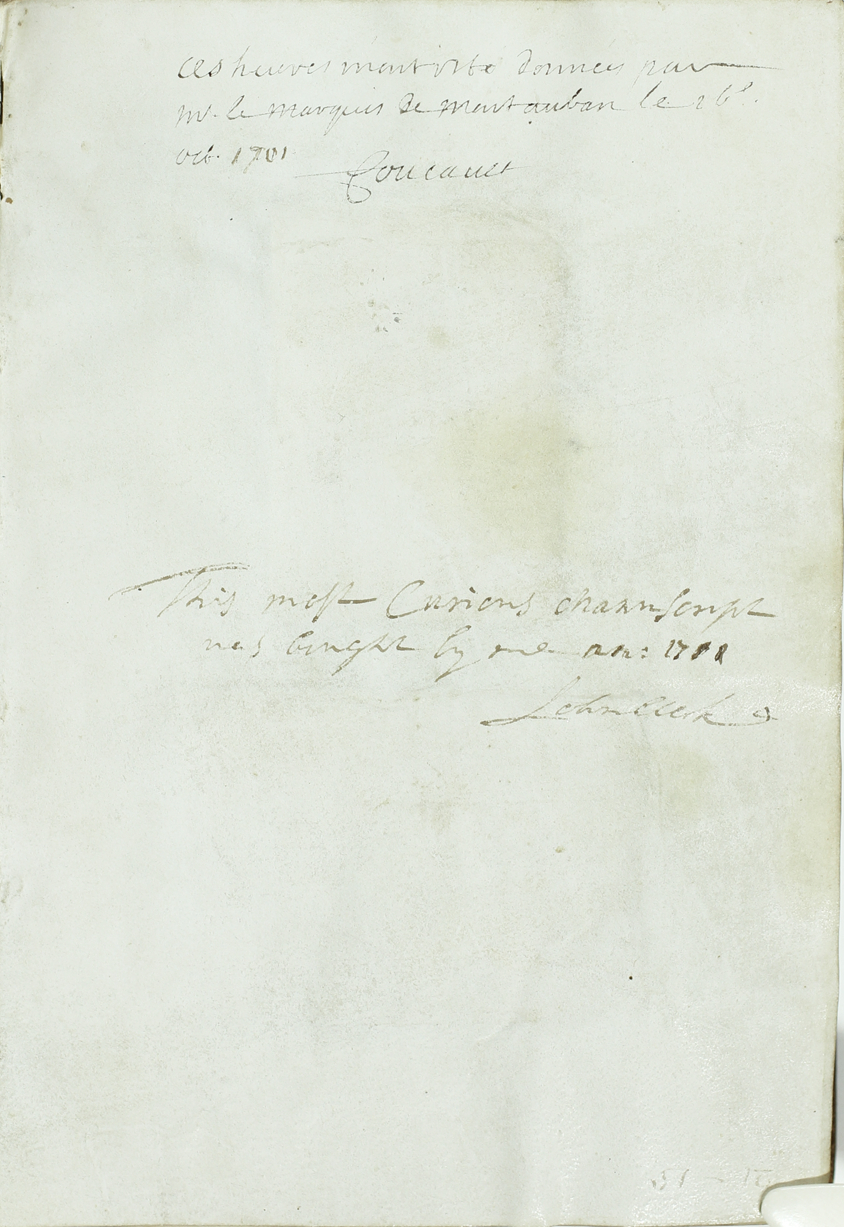 ces heures m'ont esté données par
Mr. le marquis de montauban le 26e.
oct. 1701
Foucault
This most Curious Manuscript
was bought by me an: 17
31 -